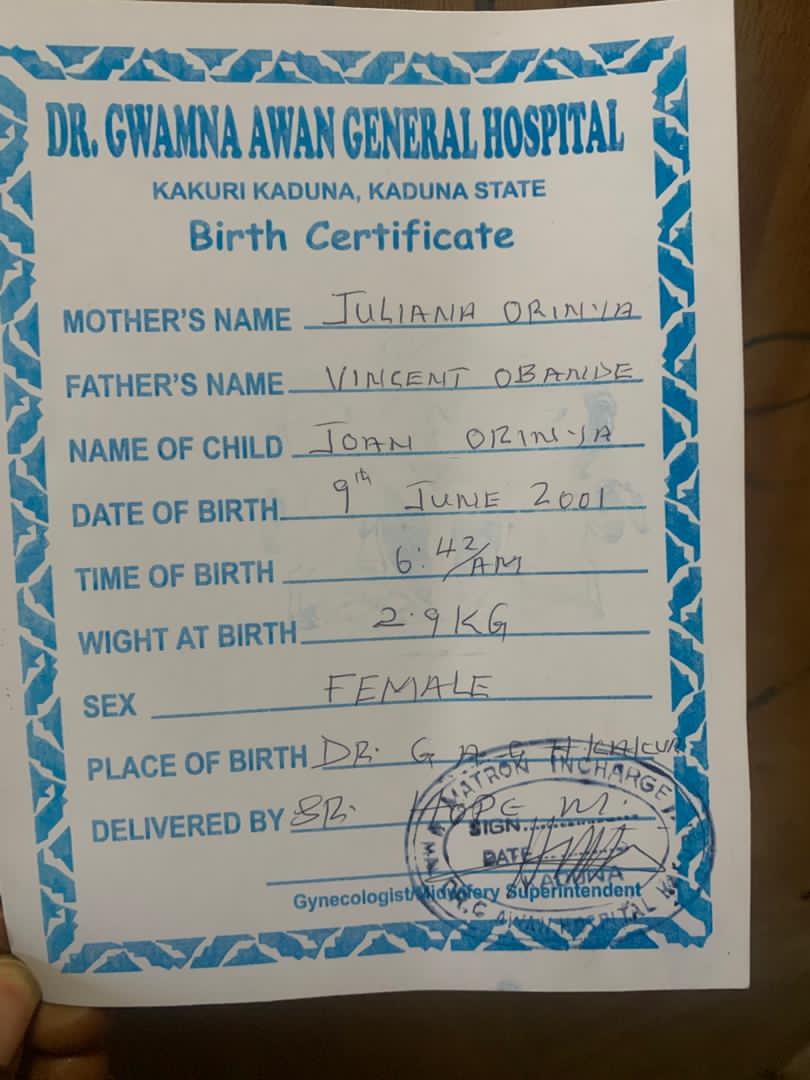 DR. GWAMNA AWAN GENERAL HOSPITAL
KAKURI KADUNA, KADUNA STATE
Birth Certificate
MOTHER'S NAME JULIANA ORINYA
FATHER'S NAME VINCENT OBANDE
NAME OF CHILD JOAN ORINYA
DATE OF BIRTH 9th JUNE 2001
TIME OF BIRTH 6:42/AM
WIGHT AT BIRTH 2.9KG
SEX FEMALE
PLACE OF BIRTH DR. G A G H KAKURI
DELIVERED BY SR. HOPE M.
MATRON INCHARGE
SIGN
DATE
KADUNA
Gynecologist/Midwifery Superintendent
DR. G AWAN HOSPITAL